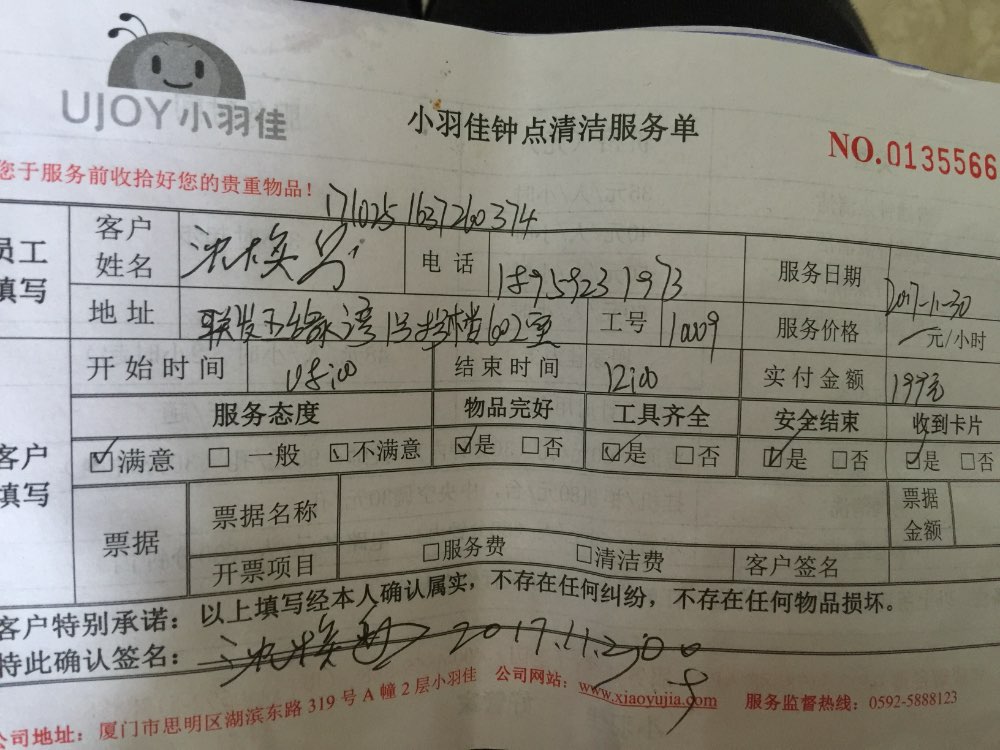 UJOY小羽佳
小羽佳钟点清洁服务单
NO.0135566
您于服务前收拾好您的贵重物品！
1710251637260374
员工填写 客户姓名 电话 18959231973 服务日期 2017-11-30
地址 联发五缘湾1号 楼602室 工号 10009 服务价格 元/小时
开始时间 08:00 结束时间 12:00 实付金额 199元
服务态度 物品完好 工具齐全 安全结束 收到卡片
客户填写 满意 一般 不满意 是 否 是 否 是 否 是 否
票据 票据名称 票据金额
开票项目 服务费 清洁费 客户签名
客户特别承诺：以上填写经本人确认属实，不存在任何纠纷，不存在任何物品损坏。
特此确认签名： 2017.11.30
公司地址：厦门市思明区湖滨东路 319 号 A 幢 2 层小羽佳 公司网站：www.xiaoyujia.com 服务监督热线：0592-5888123